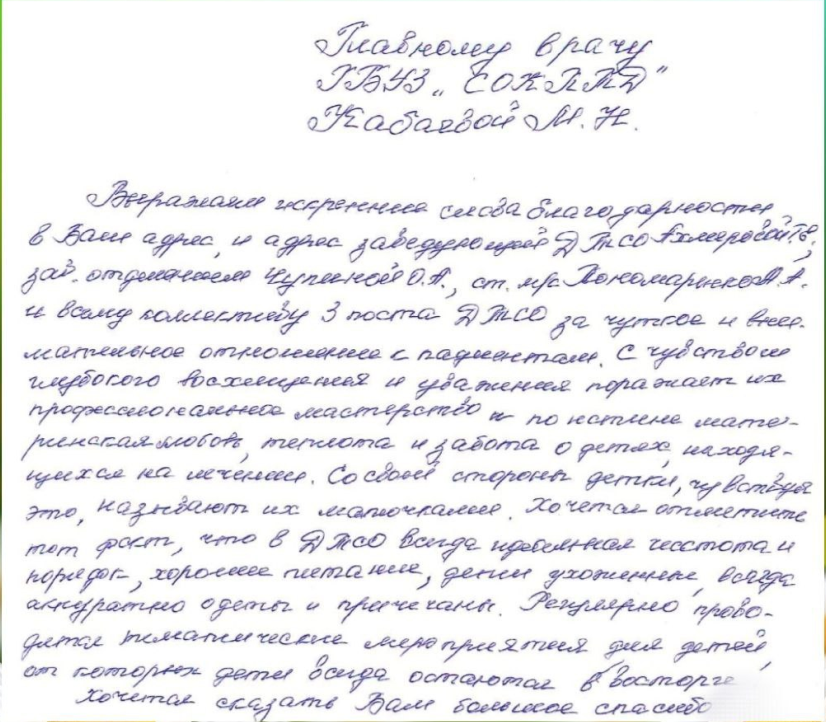 Главному врачу
ГБУЗ „СОКПТД"
Кабаевой М. Н.
Выражаем искренние слова благодарности
в Ваш адрес, и адрес заведующей ДТСО Ахмеровой Г.В.,
зав. отделением Чупиной О.А., ст. м/с Пономаренко А.А.
и всему коллективу 3 поста ДТСО за чуткое и вни-
мательное отношение к пациентам. С чувством
глубокого восхищения и уважения поражает их
профессиональное мастерство и по истине мате-
ринская любовь, теплота и забота о детях, находя-
щихся на лечении. Со своей стороны детки, чувствуя
это, называют их мамочками. Хочется отметить
тот факт, что в ДТСО всегда идеальная чистота и
порядок, хорошее питание, дети ухоженные, всегда
аккуратно одеты и причесаны. Регулярно прово-
дятся тематические мероприятия для детей,
от которых дети всегда остаются в восторге
Хочется сказать Вам большое спасибо